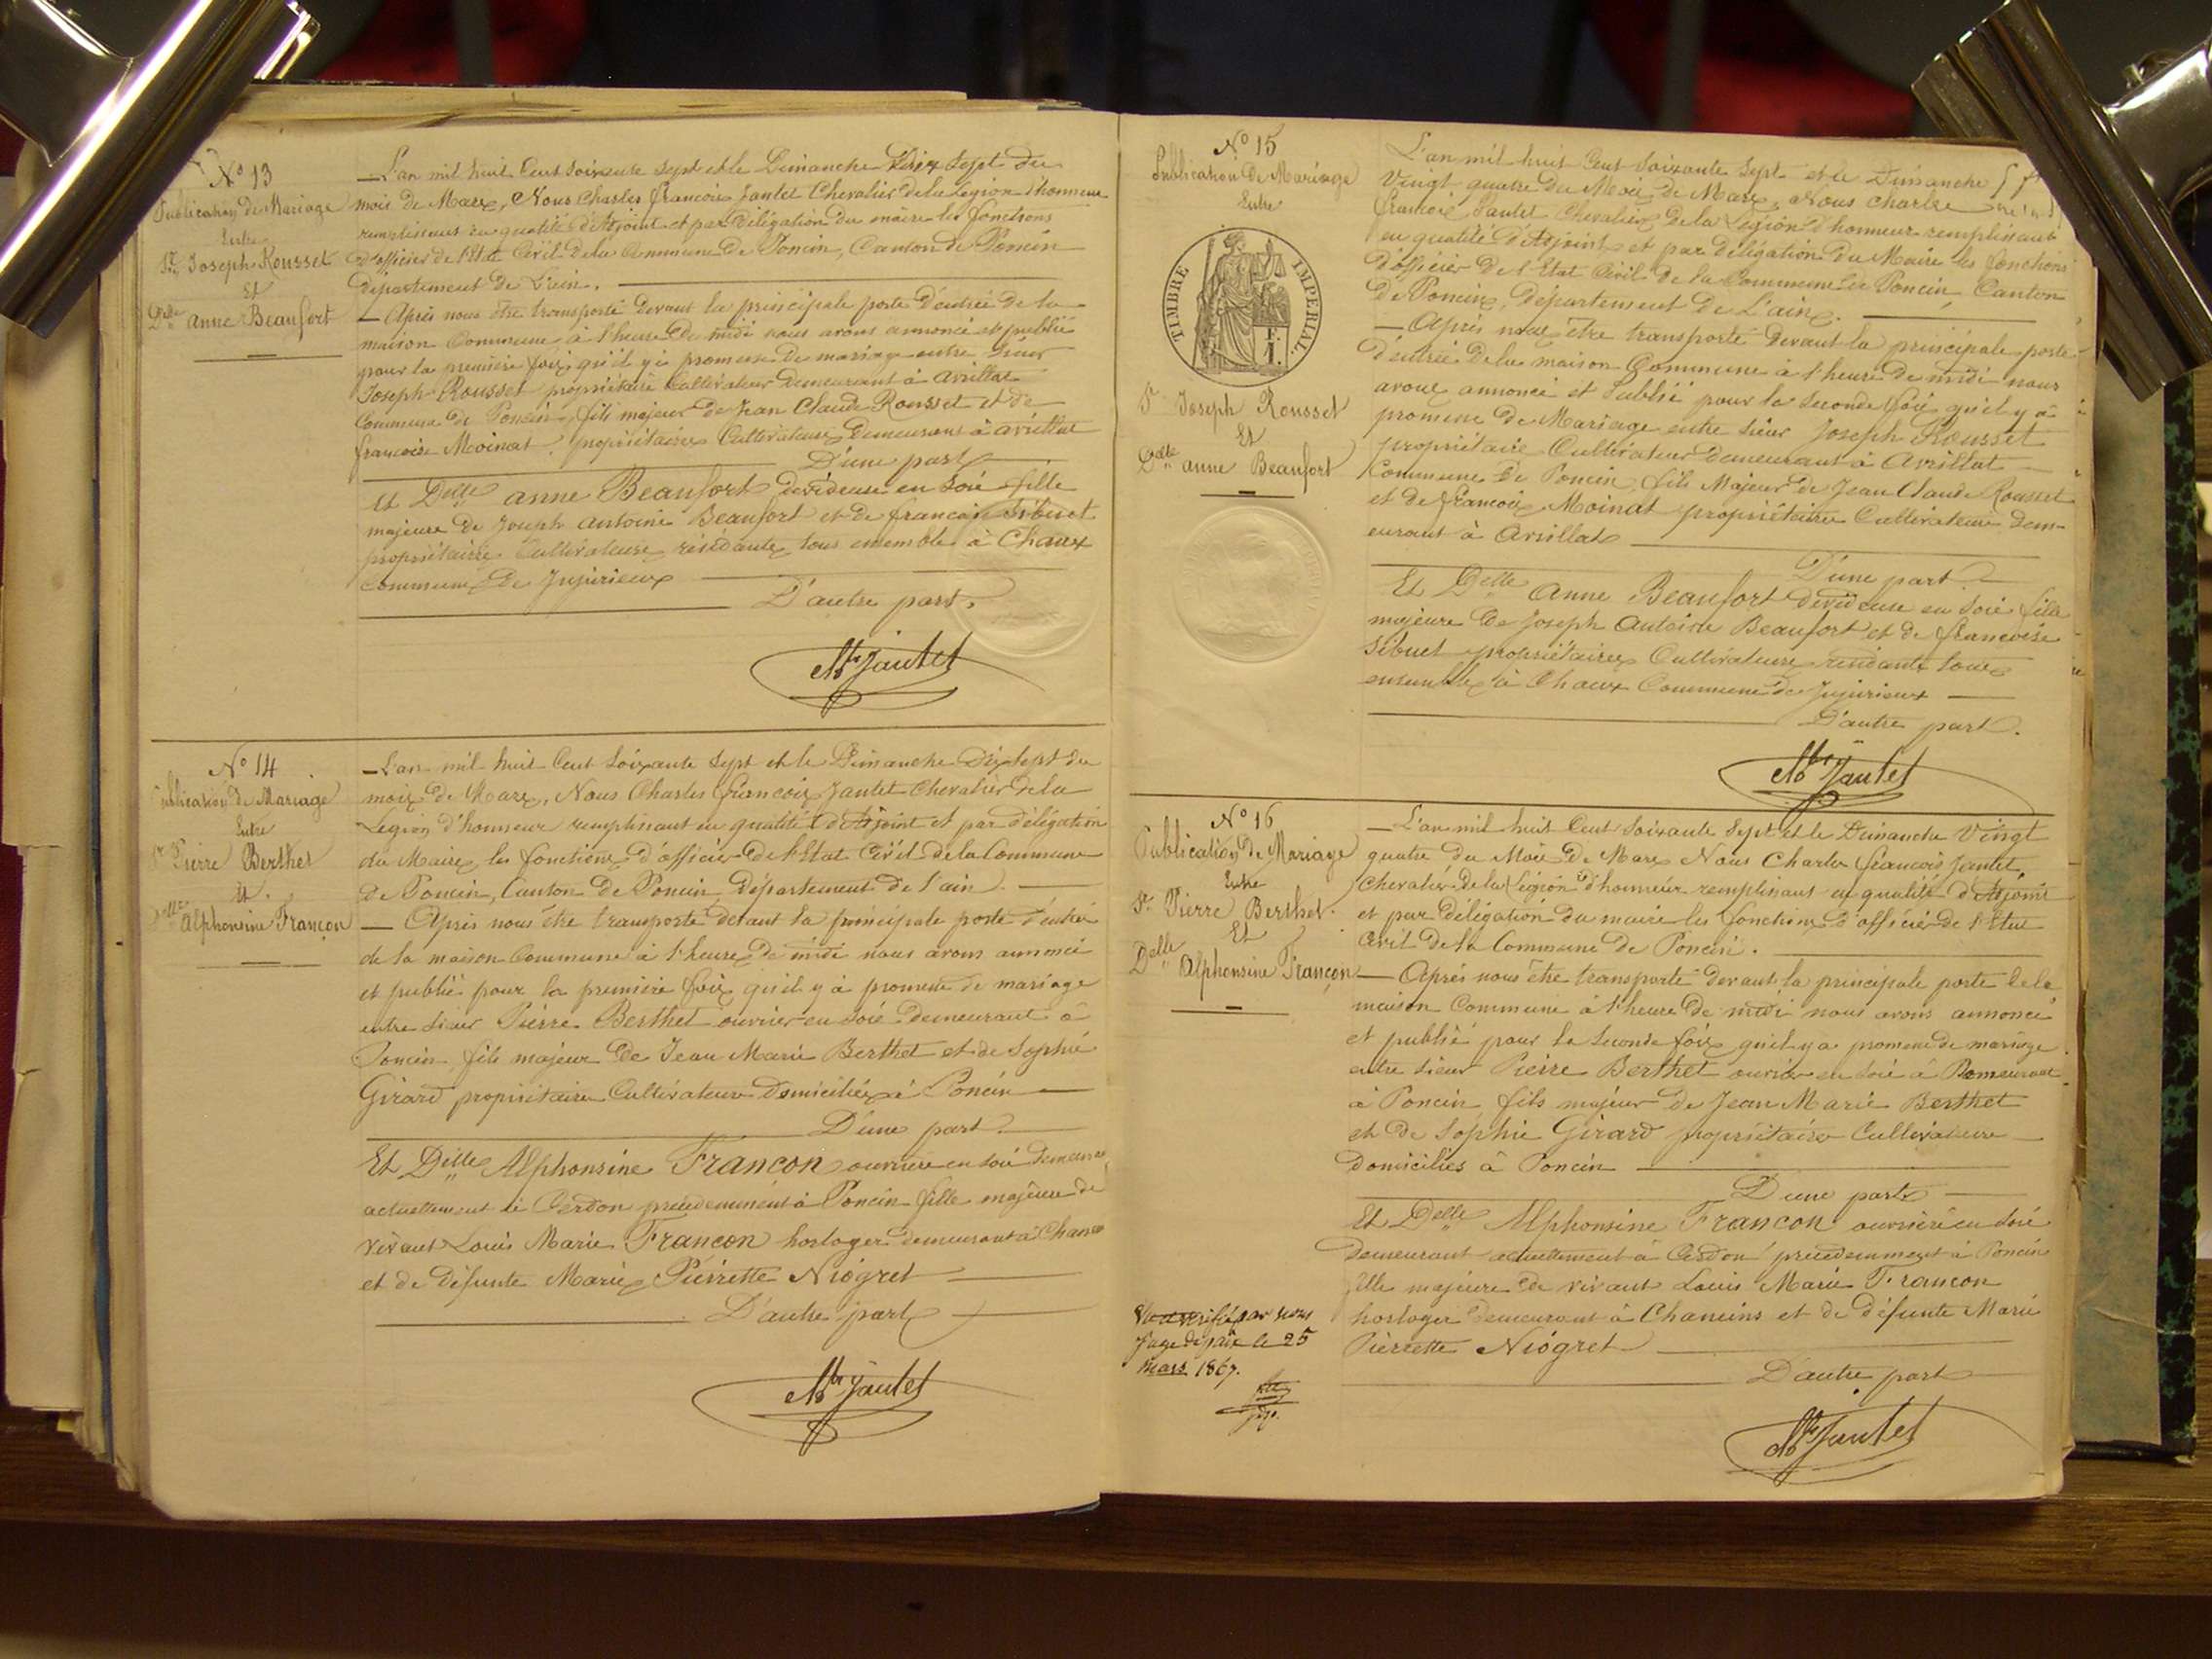 Nº 13
Publication de Mariage
Entre
Sr. Joseph Rousset
Et
Delle anne Beaufort
L'an mil huit Cent Soixante Sept et le Dimanche Dix Sept du
mois de Mars, Nous Charles francois Jantet Chevalier de la Légion d'honneur
remplissant en qualité d'Adjoint et par Délégation du maire les fonctions
d'officier de l'Etat Civil de la Commune De Poncin, Canton de Poncin
département de L'ain.
Après nous être transporté Devant la principale porte D'entrée de la
maison Commune à l'heure De midi nous avons annoncé et publié
pour la première fois qu'il y a promesse de mariage entre Sieur
Joseph Rousset propriétaire Cultivateur demeurant à Arvillat
Commune de Poncin, fils majeur de Jean Claude Rousset et de
francoise Moinat, propriétaires Cultivateurs Demeurant à arvillat
D'une part
Et Delle anne Beaufort dévideuse en Soie fille
majeure de Joseph antoine Beaufort et de francoise Sibuet
propriétaires Cultivateurs résidants tous ensemble à Chaux
Commune De Jujurieux
D'autre part.
Jantet
Nº 14
Publication de Mariage
Entre
Sr Pierre Berthet
Et.
Delle Alphonsine Françon
L'an mil huit Cent Soixante Sept et le Dimanche Dix Sept du
mois de Mars, Nous Charles francois Jantet Chevalier de la
Légion d'honneur remplissant en qualité d'Adjoint et par délégation
du Maire, les fonctions d'officier De l'Etat Civil de la Commune
de Poncin, Canton de Poncin Département de l'ain.
Après nous être transporté devant la principale porte d'entrée
de la maison Commune à l'heure De midi nous avons annoncé
et publié pour la première fois qu'il y a promesse de mariage
entre Sieur Pierre Berthet ouvrier en Soie Demeurant à
Poncin, fils majeur De Jean Marie Berthet et de Sophie
Girard propriétaires Cultivateurs Domiciliés à Poncin
D'une part
Et Delle Alphonsine Francon ouvrière en soie
actuellement à Cerdon précédemment à Poncin fille majeure de
vivant Louis Marie Francon horloger demeurant à
et de Défunte Marie Pierrette Niogret
D'autre part
Jantet
Nº 15
Publication De Mariage
Entre
TIMBRE IMPERIAL.
Sr Joseph Rousset
Et
Delle anne Beaufort
L'an mil huit Cent Soixante Sept et le Dimanche
Vingt quatre du Mois de Mars, Nous Charles
francois Jantet Chevalier de la Légion D'honneur remplissant
en qualité d'Adjoint et par Délégation du Maire les fonctions
D'officier De l'Etat Civil De la Commune de Poncin, Canton
De Poncin, Département de L'ain.
Après nous être transporté Devant la principale porte
D'entrée De la maison Commune à l'heure De midi nous
avons annoncé et Publié pour la Seconde fois qu'il y a
promesse De Mariage entre Sieur Joseph Rousset
propriétaire Cultivateur demeurant à Arvillat
Commune De Poncin, fils Majeur de Jean Claude Rousset
et de francoise Moinat propriétaires Cultivateurs Dem-
eurant à Arvillat
D'une part
Et Delle Anne Beaufort dévideuse en Soie fille
majeure De Joseph Antoine Beaufort et de francoise
Sibuet propriétaires Cultivateurs résidants tous
ensemble à Chaux Commune de Jujurieux
D'autre part.
Jantet
Nº 16
Publication De Mariage
Entre
Sr Pierre Berthet.
Et
Delle Alphonsine Françon
L'an mil huit Cent Soixante Sept et le Dimanche Vingt
quatre du Mois De Mars Nous Charles francois Jantet,
Chevalier De la Légion d'honneur remplissant en qualité d'Adjoint
et par Délégation du maire les fonctions d'officier de l'Etat
Civil de la Commune De Poncin.
Après nous être transporté devant la principale porte de la
maison Commune à l'heure De midi nous avons annoncé
et publié pour la Seconde fois qu'il y a promesse de mariage
entre Sieur Pierre Berthet ouvrier en Soie à Demeurant
à Poncin fils majeur De Jean Marie Berthet
et De Sophie Girard propriétaires Cultivateurs
Domiciliés à Poncin
D'une part
Et Delle Alphonsine Francon ouvrière en Soie
Demeurant actuellement à Cerdon précédemment à Poncin
fille majeure de vivant Louis Marie Francon
horloger Demeurant à Chaneins et de défunte Marie
Pierrette Niogret
D'autre part
Jantet
Vu et vérifié par nous
Juge de paix le 25
Mars 1867.